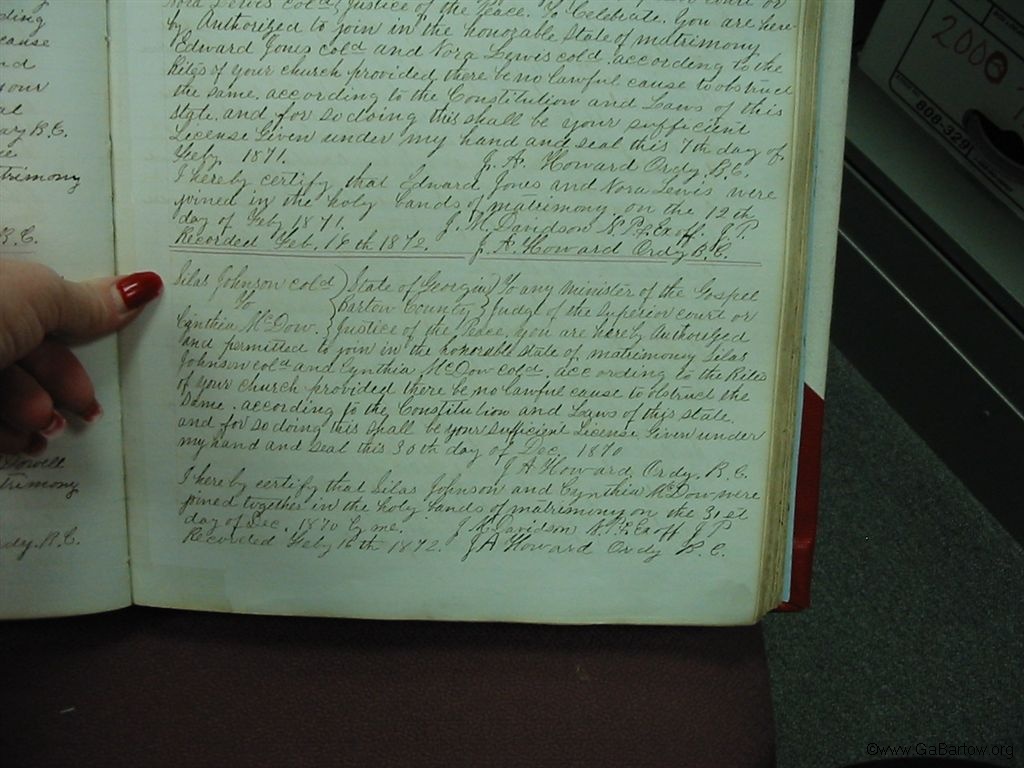 ding
cause
nd
your
al
ary B.C.
ce
trimony
R.C.
Dowell
trimony
rdy. B.C.
Nora Lewis cold Justice of the Peace. To Celebrate. You are here
by Authorised to join in the honorable State of matrimony
Edward Jones cold and Nora Lewis cold. according to the
Rites of your church provided there be no lawful cause to obstruct
the same. according to the Constitution and Laws of this
State. and for so doing this shall be your sufficient
License Given under my hand and seal this 7th day of
Feby. 1871. J. A. Howard Ordy B.C.
I hereby certify that Edward Jones and Nora Lewis were
joined in the holy bands of matrimony. on the 12th
day of Feby 1871. J. M. Davidson N.P. & Exoff. J.P.
Recorded Feb. 16th 1872. J. A. Howard Ordy B.C.
Silas Johnson cold } State of Georgia } To any Minister of the Gospel
To } Bartow County } Judge of the Superior court or
Cynthia McDow. } Justice of the Peace, you are hereby Authorised
and permitted to join in the honorable State of matrimony Silas
Johnson cold and Cynthia McDow cold. according to the Rites
of your church provided there be no lawful cause to obstruct the
Same. according to the Constitution and Laws of this State.
and for so doing this shall be your sufficient License. Given under
my hand and seal this 30th day of Dec. 1870
J A Howard Ordy. B.C.
I hereby certify that Silas Johnson and Cynthia McDow were
joined together in the holy bands of matrimony on the 31st
day of Dec. 1870 by me. J M Davidson N.P. & Exoff J P
Recorded Feby 16th 1872. J A Howard Ordy B.C.
2006
808-329
©www.GaBartow.org